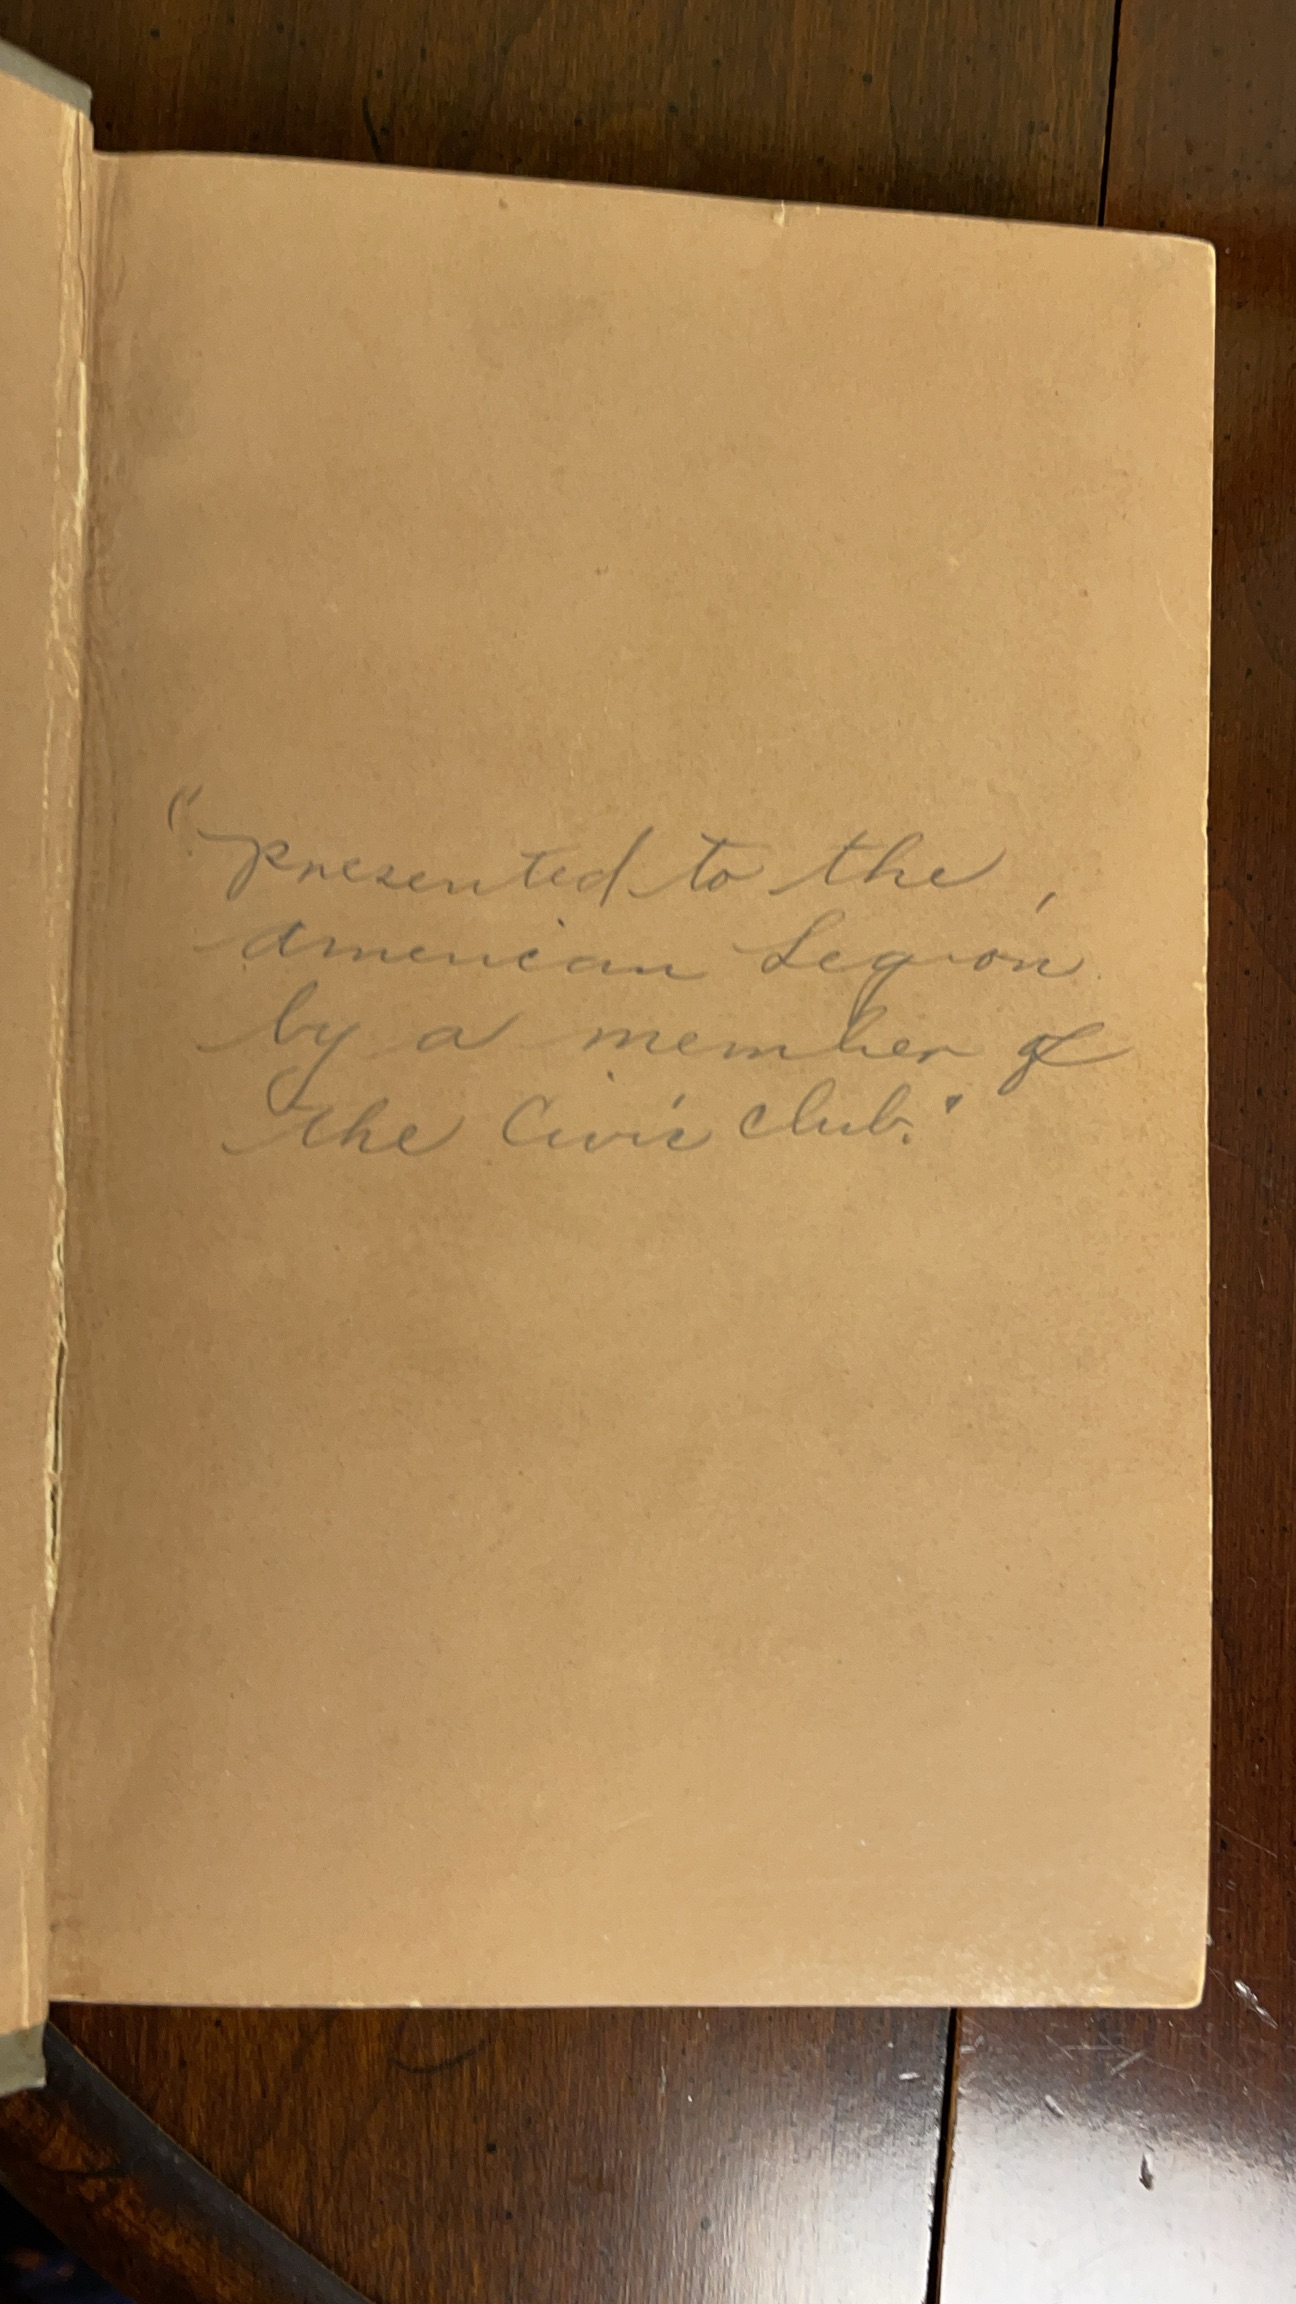 "presented to the
American Legion
by a member of
the Civic Club."